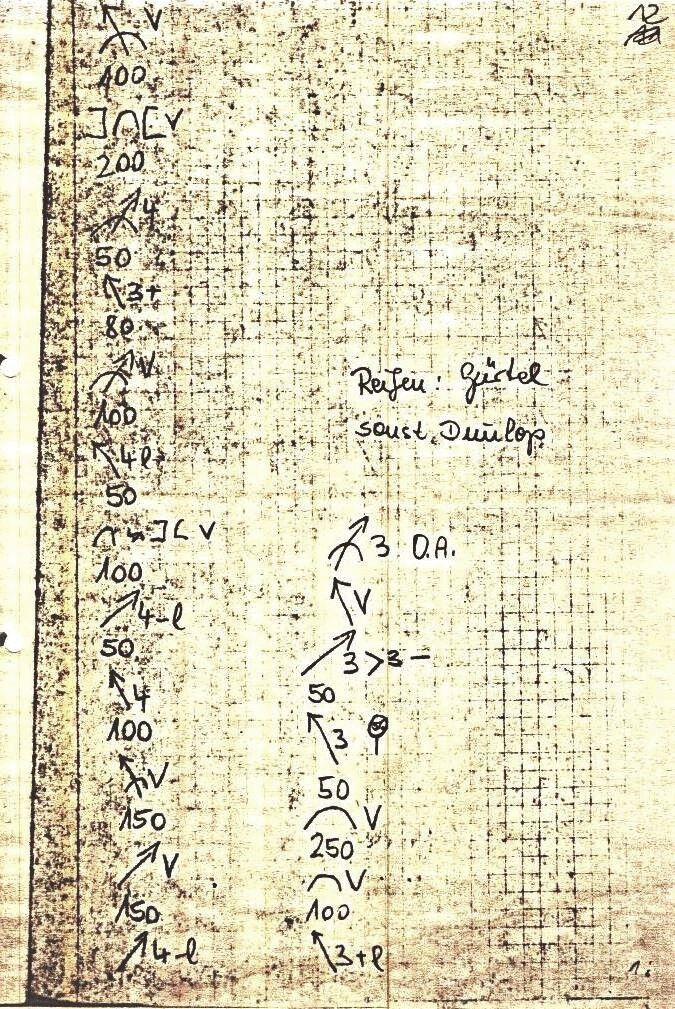 12
V
100
V
200
4
50
3+
80
V
100
4l
50
V
100
4-l
50
4
100
V
150
V
150
4-l
Reifen: Gürtel
sonst. Dunlop
3 O.A.
V
3>3-
50
3
50
V
250
V
100
3+l
1.